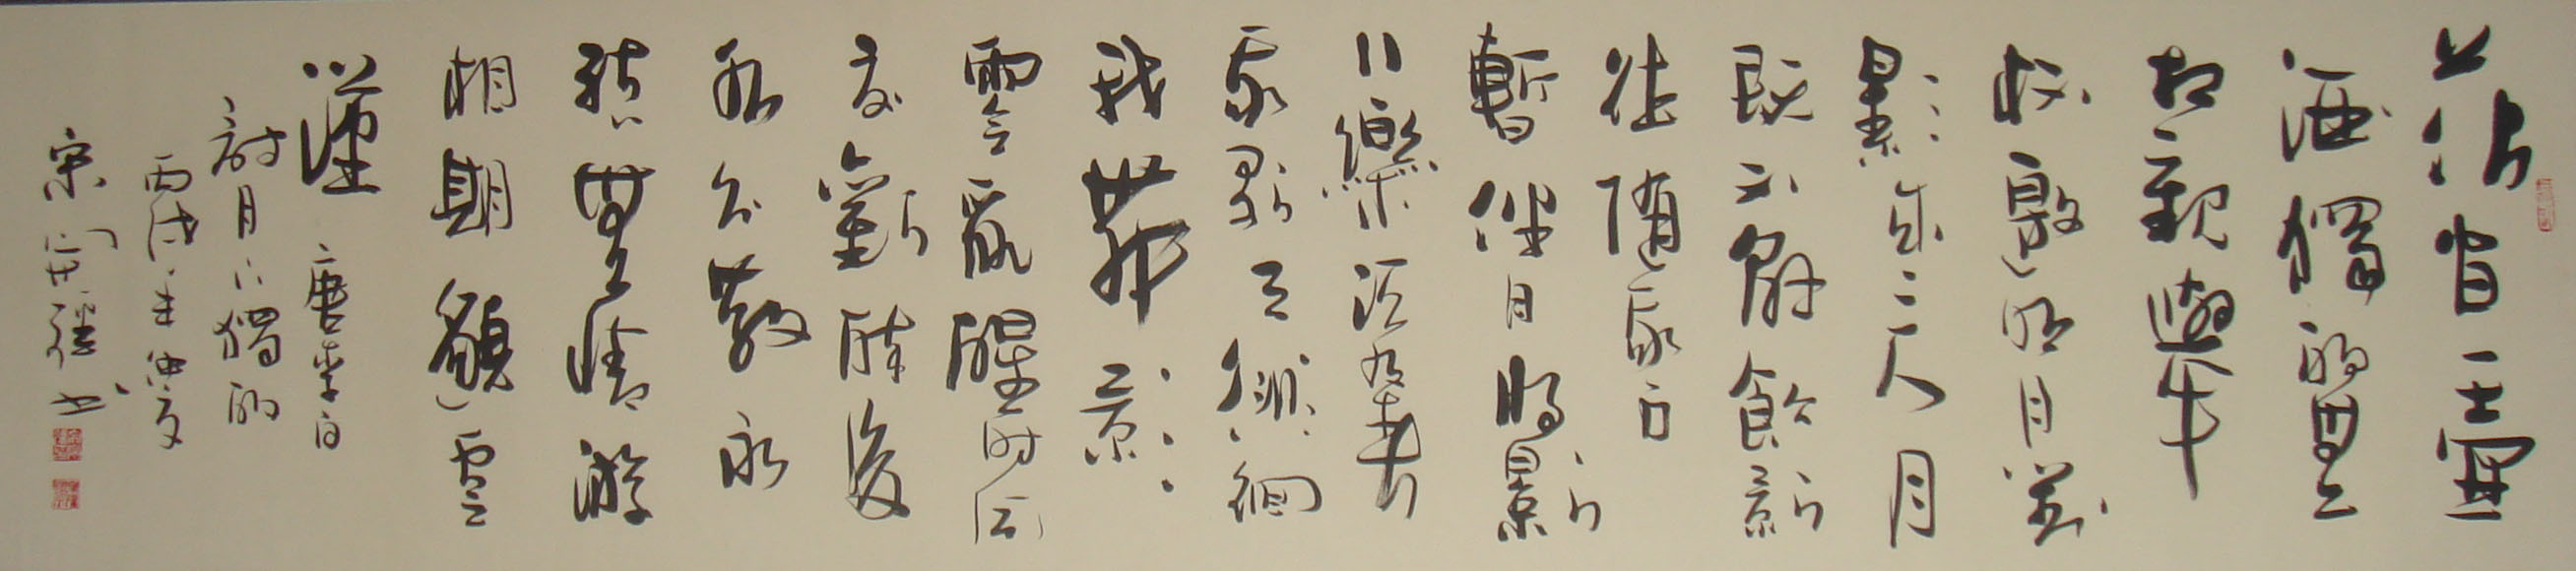 花間一壺
酒獨酌無
相親舉
杯邀明月對
影成三人月
既不解飲影
徒隨我身
暫伴月將影
行樂須及春
我歌月徘徊
我舞影
零亂醒時同
交歡醉後
各分散永
結無情游
相期邈雲
漢 唐李白
詩月下獨酌
丙戌年仲夏
宋 书